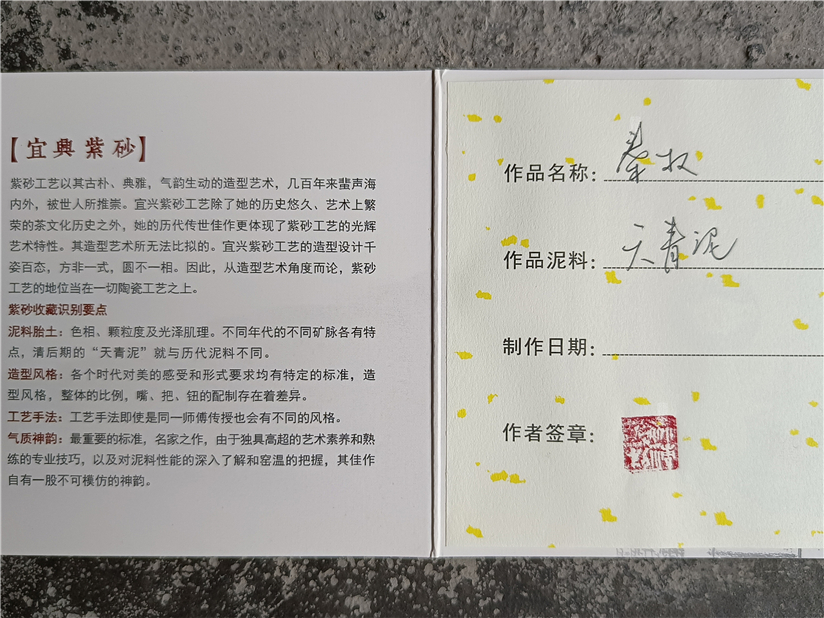 【宜興紫砂】
紫砂工艺以其古朴、典雅，气韵生动的造型艺术，几百年来蜚声海
内外，被世人所推崇。宜兴紫砂工艺除了她的历史悠久、艺术上繁
荣的茶文化历史之外，她的历代传世佳作更体现了紫砂工艺的光辉
艺术特性。其造型艺术所无法比拟的。宜兴紫砂工艺的造型设计千
姿百态，方非一式，圆不一相。因此，从造型艺术角度而论，紫砂
工艺的地位当在一切陶瓷工艺之上。
紫砂收藏识别要点
泥料胎土：色相、颗粒度及光泽肌理。不同年代的不同矿脉各有特
点，清后期的“天青泥”就与历代泥料不同。
造型风格：各个时代对美的感受和形式要求均有特定的标准，造
型风格，整体的比例，嘴、把、钮的配制存在着差异。
工艺手法：工艺手法即使是同一师傅传授也会有不同的风格。
气质神韵：最重要的标准，名家之作，由于独具高超的艺术素养和熟
练的专业技巧，以及对泥料性能的深入了解和窑温的把握，其佳作
自有一股不可模仿的神韵。
作品名称：秦权
作品泥料：天青泥
制作日期：
作者签章：